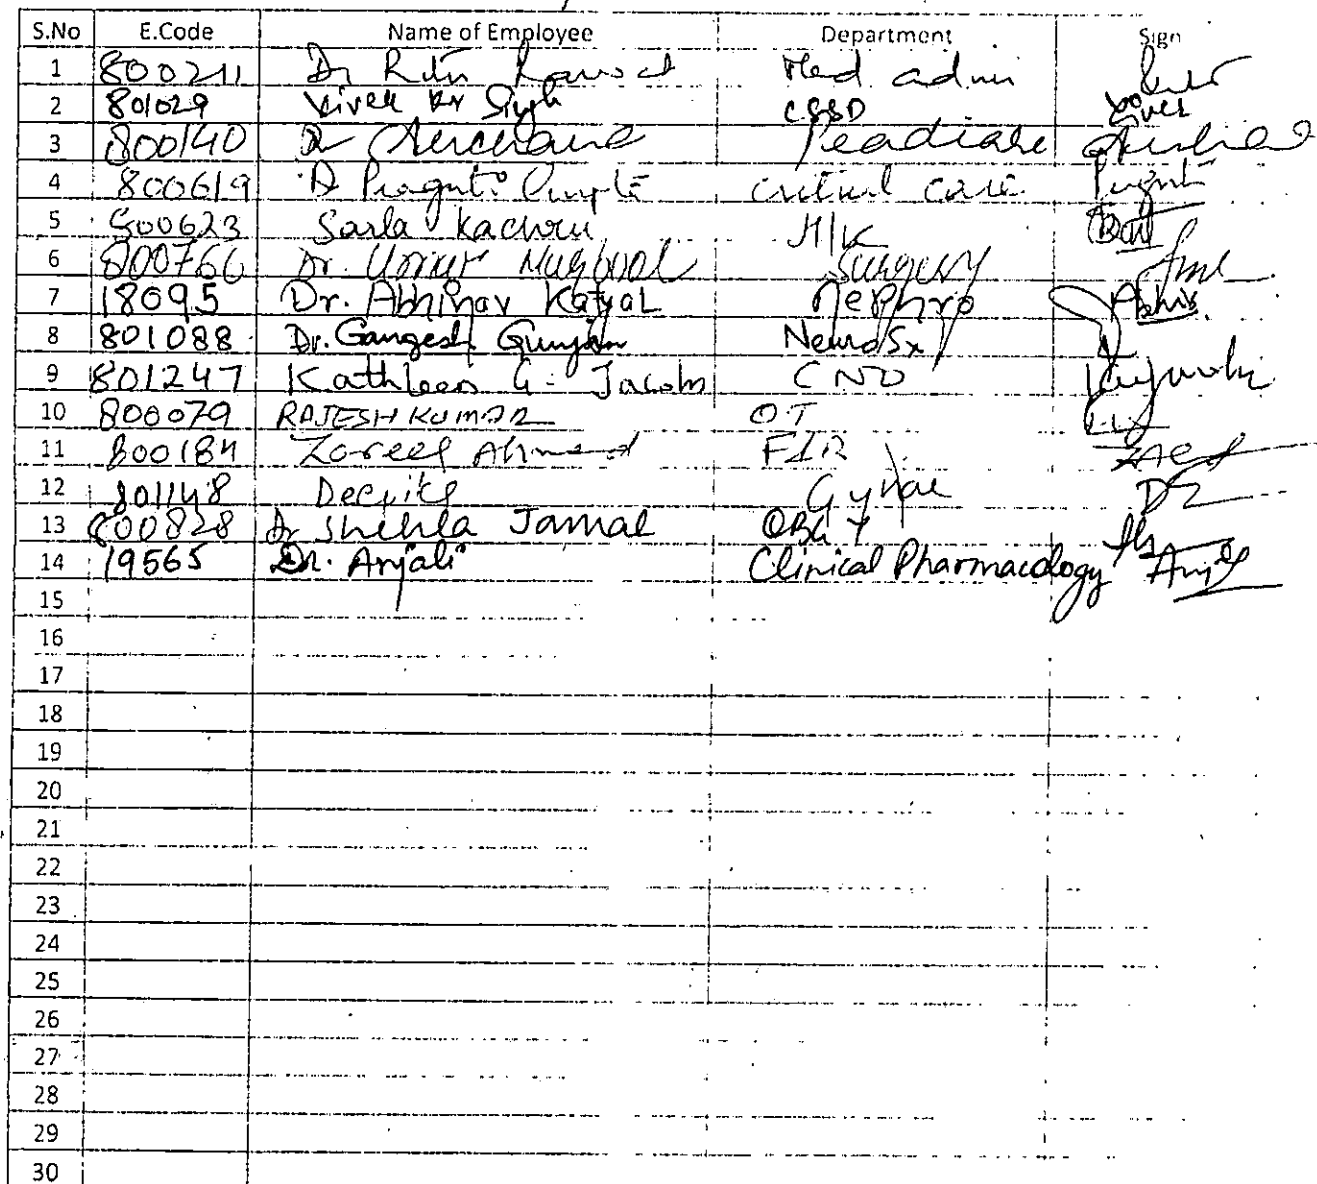 S.No E.Code Name of Employee Department Sign
1 800211 Dr Ritu Med admin
2 801029 Vivek Kr Singh CSSD Vivek
3 800140 Dr
4 800619 Dr Pragati Gupta critical care Pragati
5 800623 Sarla Kachru H/K
6 800766 Dr. Umer Maqbool Surgery
7 18095 Dr. Abhinav Katyal Nephro Abhin
8 801088 Dr. Gangesh Gunjan Neuro Sx
9 801247 Kathleen G. Jacob CNO
10 800079 RAJESH KUMAR OT
11 800184 Zareef Ahmed
12 801148 Gynae
13 800828 Dr Shehla Jamal OBGY
14 19565 Dr. Anjali Clinical Pharmacology
15
16
17
18
19
20
21
22
23
24
25
26
27
28
29
30